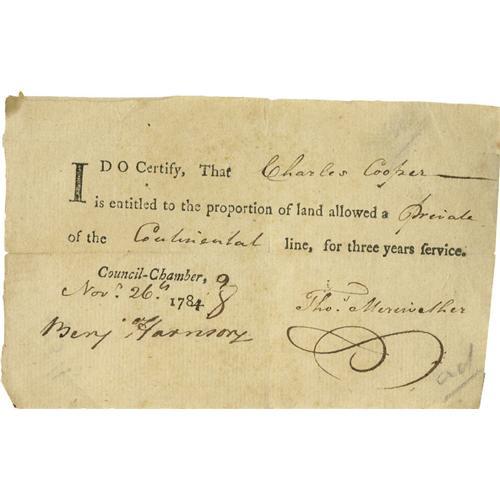 I DO Certify, That Charles Cooper
is entitled to the proportion of land allowed a Private
of the Continental line, for three years service.
Council-Chamber,
Novr. 26th 1784
Thos. Meriwether
Benj Harrison
ad